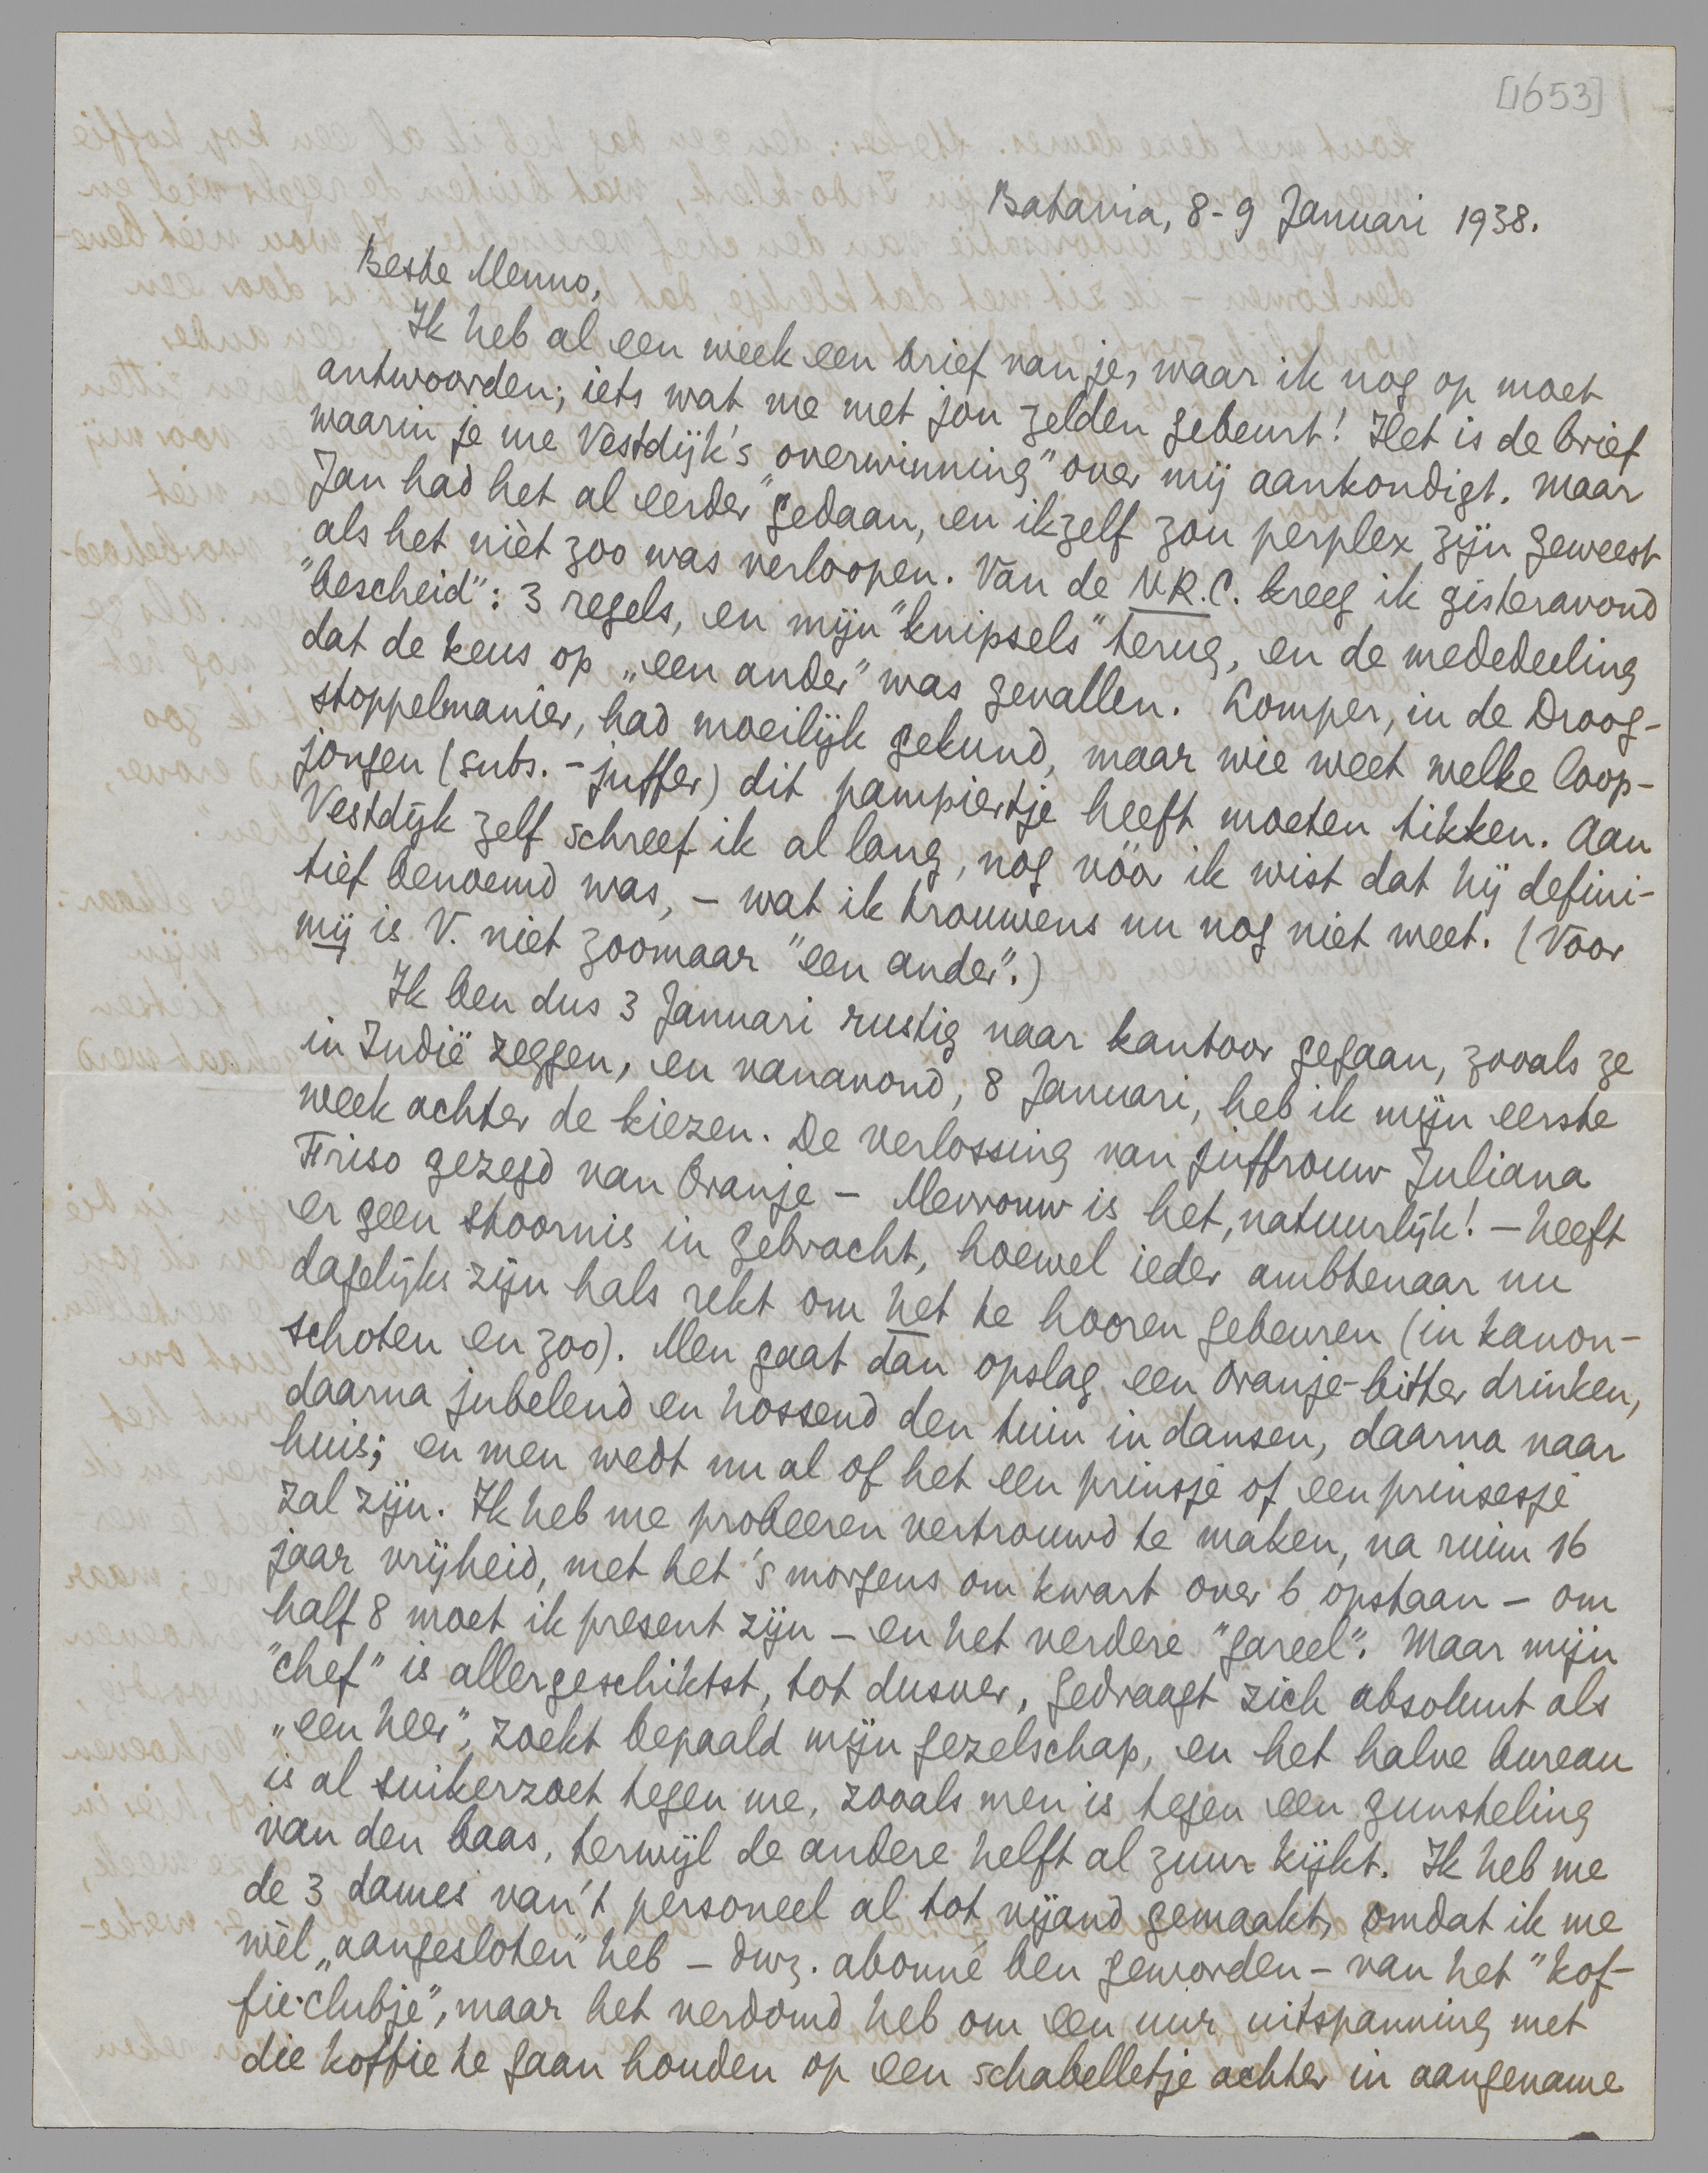 [1653]
Batavia, 8-9 Januari 1938.
Beste Menno,
Ik heb al een week een brief van je, waar ik nog op moet
antwoorden; iets wat me met jou zelden gebeurt! Het is de brief
waarin je me Vestdijk's "overwinning" over mij aankondigt. Maar
Jan had het al eerder gedaan, en ikzelf zou perplex zijn geweest
als het nièt zoo was verloopen. Van de N.R.C. kreeg ik gisteravond
"bescheid": 3 regels, en mijn "knipsels" terug, en de mededeeling
dat de keus op „een ander" was gevallen. Lomper, in de Droog-
stoppelmanier, had moeilijk gekund, maar wie weet welke loop-
jongen (subs. -juffer) dit pampiertje heeft moeten tikken. Aan
Vestdijk zelf schreef ik al lang, nog vóór ik wist dat hij defini-
tief benoemd was, – wat ik trouwens nu nog niet weet. (Voor
mij is V. niet zoomaar "een ander".)
Ik ben dus 3 Januari rustig naar kantoor gegaan, zooals ze
in Indië zeggen, en vanavond, 8 Januari, heb ik mijn eerste
week achter de kiezen. De verlossing van juffrouw Juliana
Friso gezegd van Oranje – Mevrouw is het, natuurlijk! – heeft
er geen stoornis in gebracht, hoewel ieder ambtenaar nu
dagelijks zijn hals rekt om het te hooren gebeuren (in kanon-
schoten en zoo). Men gaat dan opslag een Oranje-bitter drinken,
daarna jubelend en hossend den tuin in dansen, daarna naar
huis; en men wedt nu al of het een prinsje of een prinsesje
zal zijn. Ik heb me probeeren vertrouwd te maken, na ruim 16
jaar vrijheid, met het 's morgens om kwart over 6 opstaan – om
half 8 moet ik present zijn – en het verdere "gareel". Maar mijn
"chef" is allergeschiktst, tot dusver, gedraagt zich absoluut als
„een heer", zoekt bepaald mijn gezelschap, en het halve bureau
is al suikerzoet tegen me, zooals men is tegen een gunsteling
van den baas, terwijl de andere helft al zuur kijkt. Ik heb me
de 3 dames van 't personeel al tot vijand gemaakt, omdat ik me
wèl „aangesloten" heb – dwz. abonné ben geworden – van het "kof-
fie-clubje", maar het verdomd heb om een uur uitspanning met
die koffie te gaan houden op een schabelletje achter in aangename